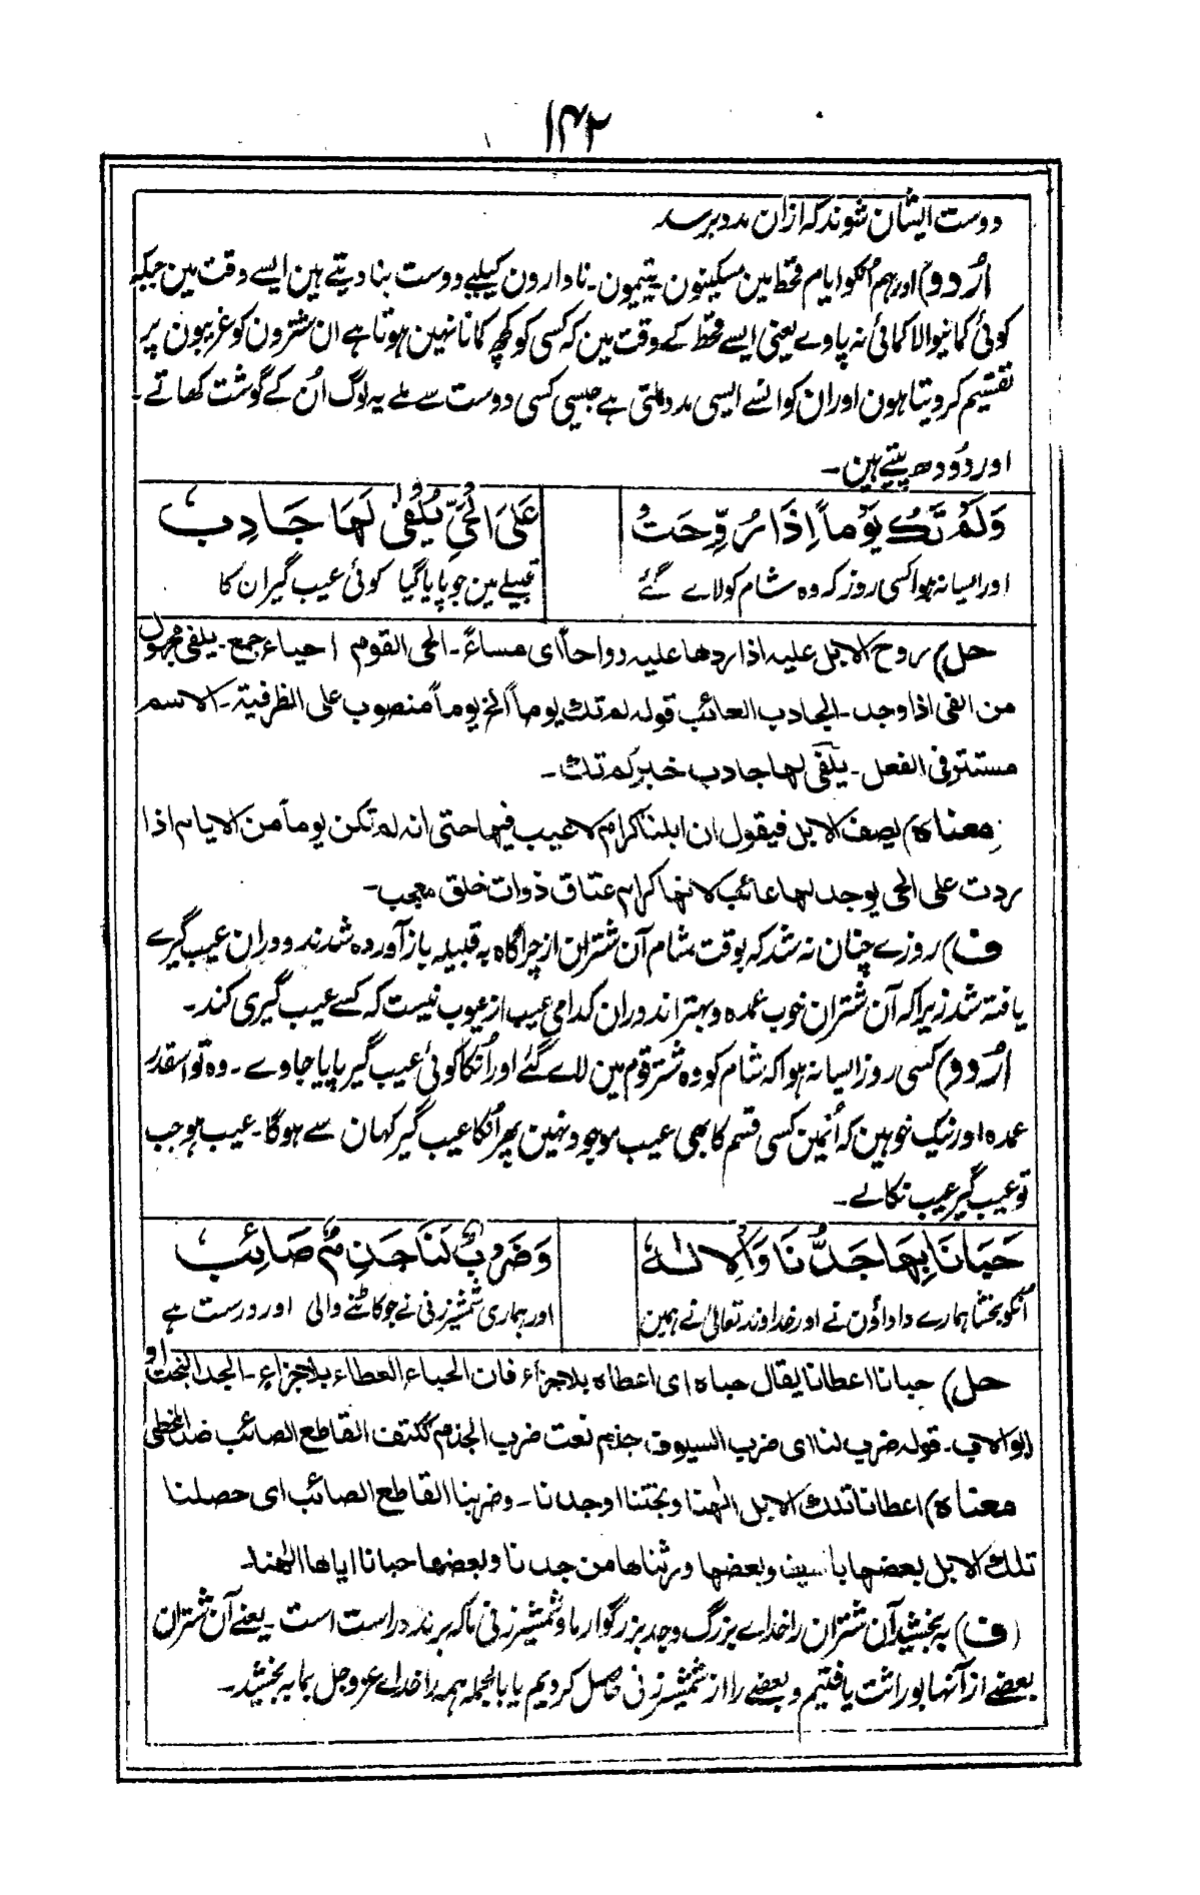 ۱۴۲
دوست ایشان شوند که ازان مدد برسد
اُردو) اور ہم اُنکو ایام قحط مین مسکینون۔ یتیمون۔ نادارون کیلیے دوست بنا دیتے ہین ایسے وقت مین جبکہ
کوئی کمانیوالا کمائی نہ پاوے یعنی ایسے قحط کے وقت مین کہ کسی کو کچھ کھانا نہین ہوتا ہے ان شترون کو غریبون پر
تقسیم کردیتا ہون اور ان کو انسے ایسی مدد ملتی ہے جیسی کسی دوست سے ملے یہ لوگ اُن کے گوشت کھاتے۔
اور دُودھ پیتے ہین۔
وَلَمْ تَكُ يَوْماً اِذَا رُوِّحَتْ
عَلَى الْحَيِّ يُلْفٰى لَهَا جَادِبُ
اور ایسا نہ ہوا کسی روز کہ وہ شام کو لاے گئے
قبیلے مین جو پایا گیا کوئی عیب گیر ان کا
حل) روح الابل علیه اذا ردها علیه رواحاً ای مساءً۔ الحی القوم احیاء جمع۔ یلفی مجہول
من الفی اذا وجد۔ الجادب العائب قوله لم تك یوماً الخ یوماً منصوب علی الظرفیة۔ الاسم
مستتر فی الفعل۔ یلفٰی لها جادب خبر لم تك۔
معناه) یصف الابل فیقول ان ابلنا کرام لا عیب فیها حتی انه لم تکن یوماً من الایام اذا
ردت علی الحی یوجد لها عائب لانها کرام عتاق ذوات خلق معجب۔
ف) روزے چنان نہ شد کہ بوقت شام آن شتران از چراگاہ بہ قبیلہ باز آوردہ شدند و دران عیب گیرے
یافتہ شد زیرا کہ آن شتران خوب عمدہ و بہتر اند و دران کدامی عیب از عیوب نیست کہ کسے عیب گیری کند۔
اُردو) کسی روز ایسا نہ ہوا کہ شام کو وہ شتر قوم مین لاے گئے اور اُنکا کوئی عیب گیر پایا جاوے۔ وہ تو اسقدر
عمدہ اور نیک خو ہین کہ اُنمین کسی قسم کا بھی عیب موجود نہین پھر اُنکا عیب گیر کہان سے ہوگا۔ عیب ہو جب
تو عیب گیر عیب نکالے۔
حَبَانَا بِهَا جَدُّنَا وَالْاِلٰهُ
وَضَرْبٌ لَنَا جَذِمٌ صَائِبُ
اُنکو بخشا ہمارے داداؤن نے اور خداوند تعالی نے ہمین
اور ہماری شمشیر زنی نے جو کاٹنے والی اور درست ہے
حل) حبانا اعطانا یقال حباه ای اعطاه بلا جزاء فان الحباء العطاء بلا جزاء۔ الجد البخت او
ابو الاب۔ قوله ضرب لنا ای ضرب السیوف جذم نعت ضرب الجذم ککتف القاطع الصائب ضد المخطی
معناه) اعطانا تلك الابل الٰهنا وبختنا او جدنا۔ وضربنا القاطع الصائب ای حصلنا
تلك الابل بعضها بالسیف وبعضها ورثناها من جدنا وبعضها حبانا ایاها الٰهنا۔
(ف) بہ بخشید آن شتران را خداے بزرگ و جد بزرگوار ما و شمشیر زنی ما کہ برند و راست است۔ یعنے آن شتران
بعضے از آنہا بوراثت یافتیم و بعضے را از شمشیر زنی حاصل کردیم یا بالجملہ ہمہ را خداے عز و جل بما بہ بخشید۔